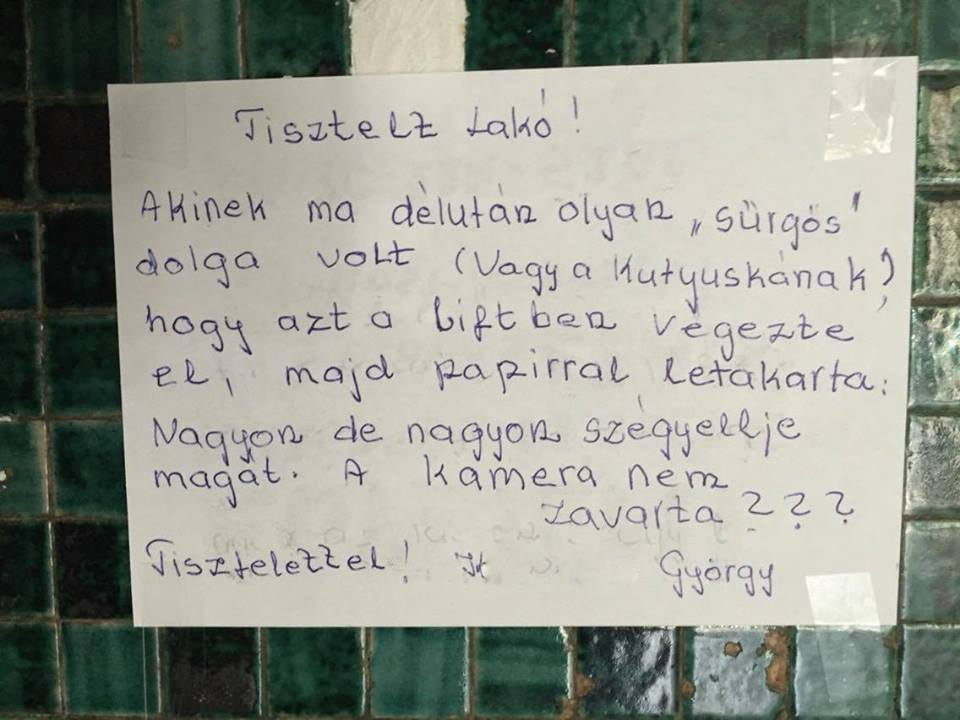 Tisztelz Lakó!
Akinek ma délután olyan „sürgős"
dolga volt (Vagy a kutyuskának)
hogy azt a liftben végezte
el, majd papirral letakarta:
Nagyon de nagyon szégyellje
magát. A kamera nem
zavarta ???
Tisztelettel! György